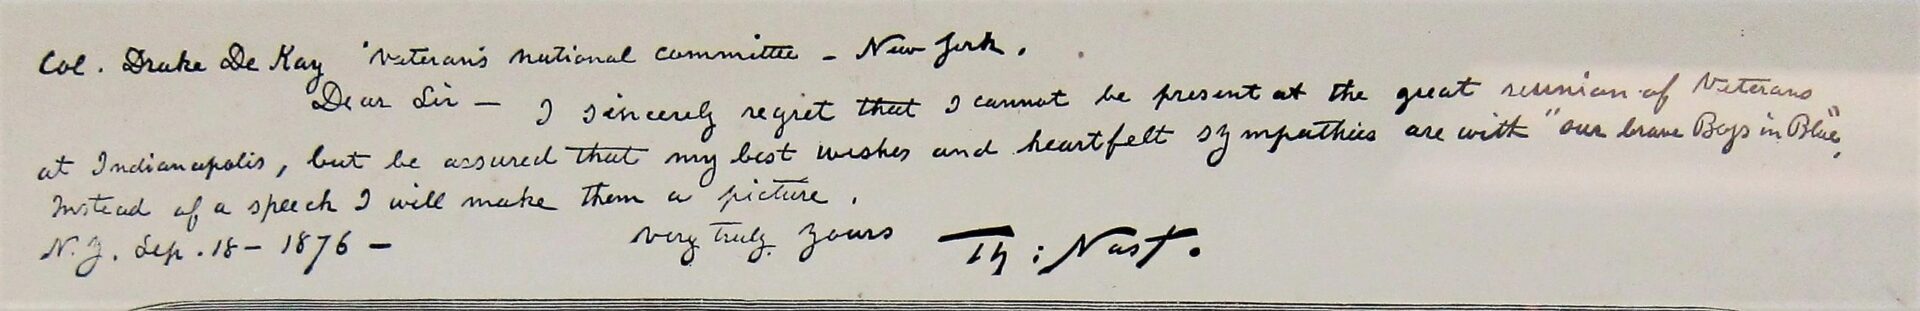 Col. Drake De Kay Veterans national committee – New York.
Dear Sir – I sincerely regret that I cannot be present at the great reunion of Veterans
at Indianapolis, but be assured that my best wishes and heartfelt sympathies are with "our brave Boys in Blue".
Instead of a speech I will make them a picture.
N.Y. Sep. 18 – 1876 – Very truly yours Th: Nast.